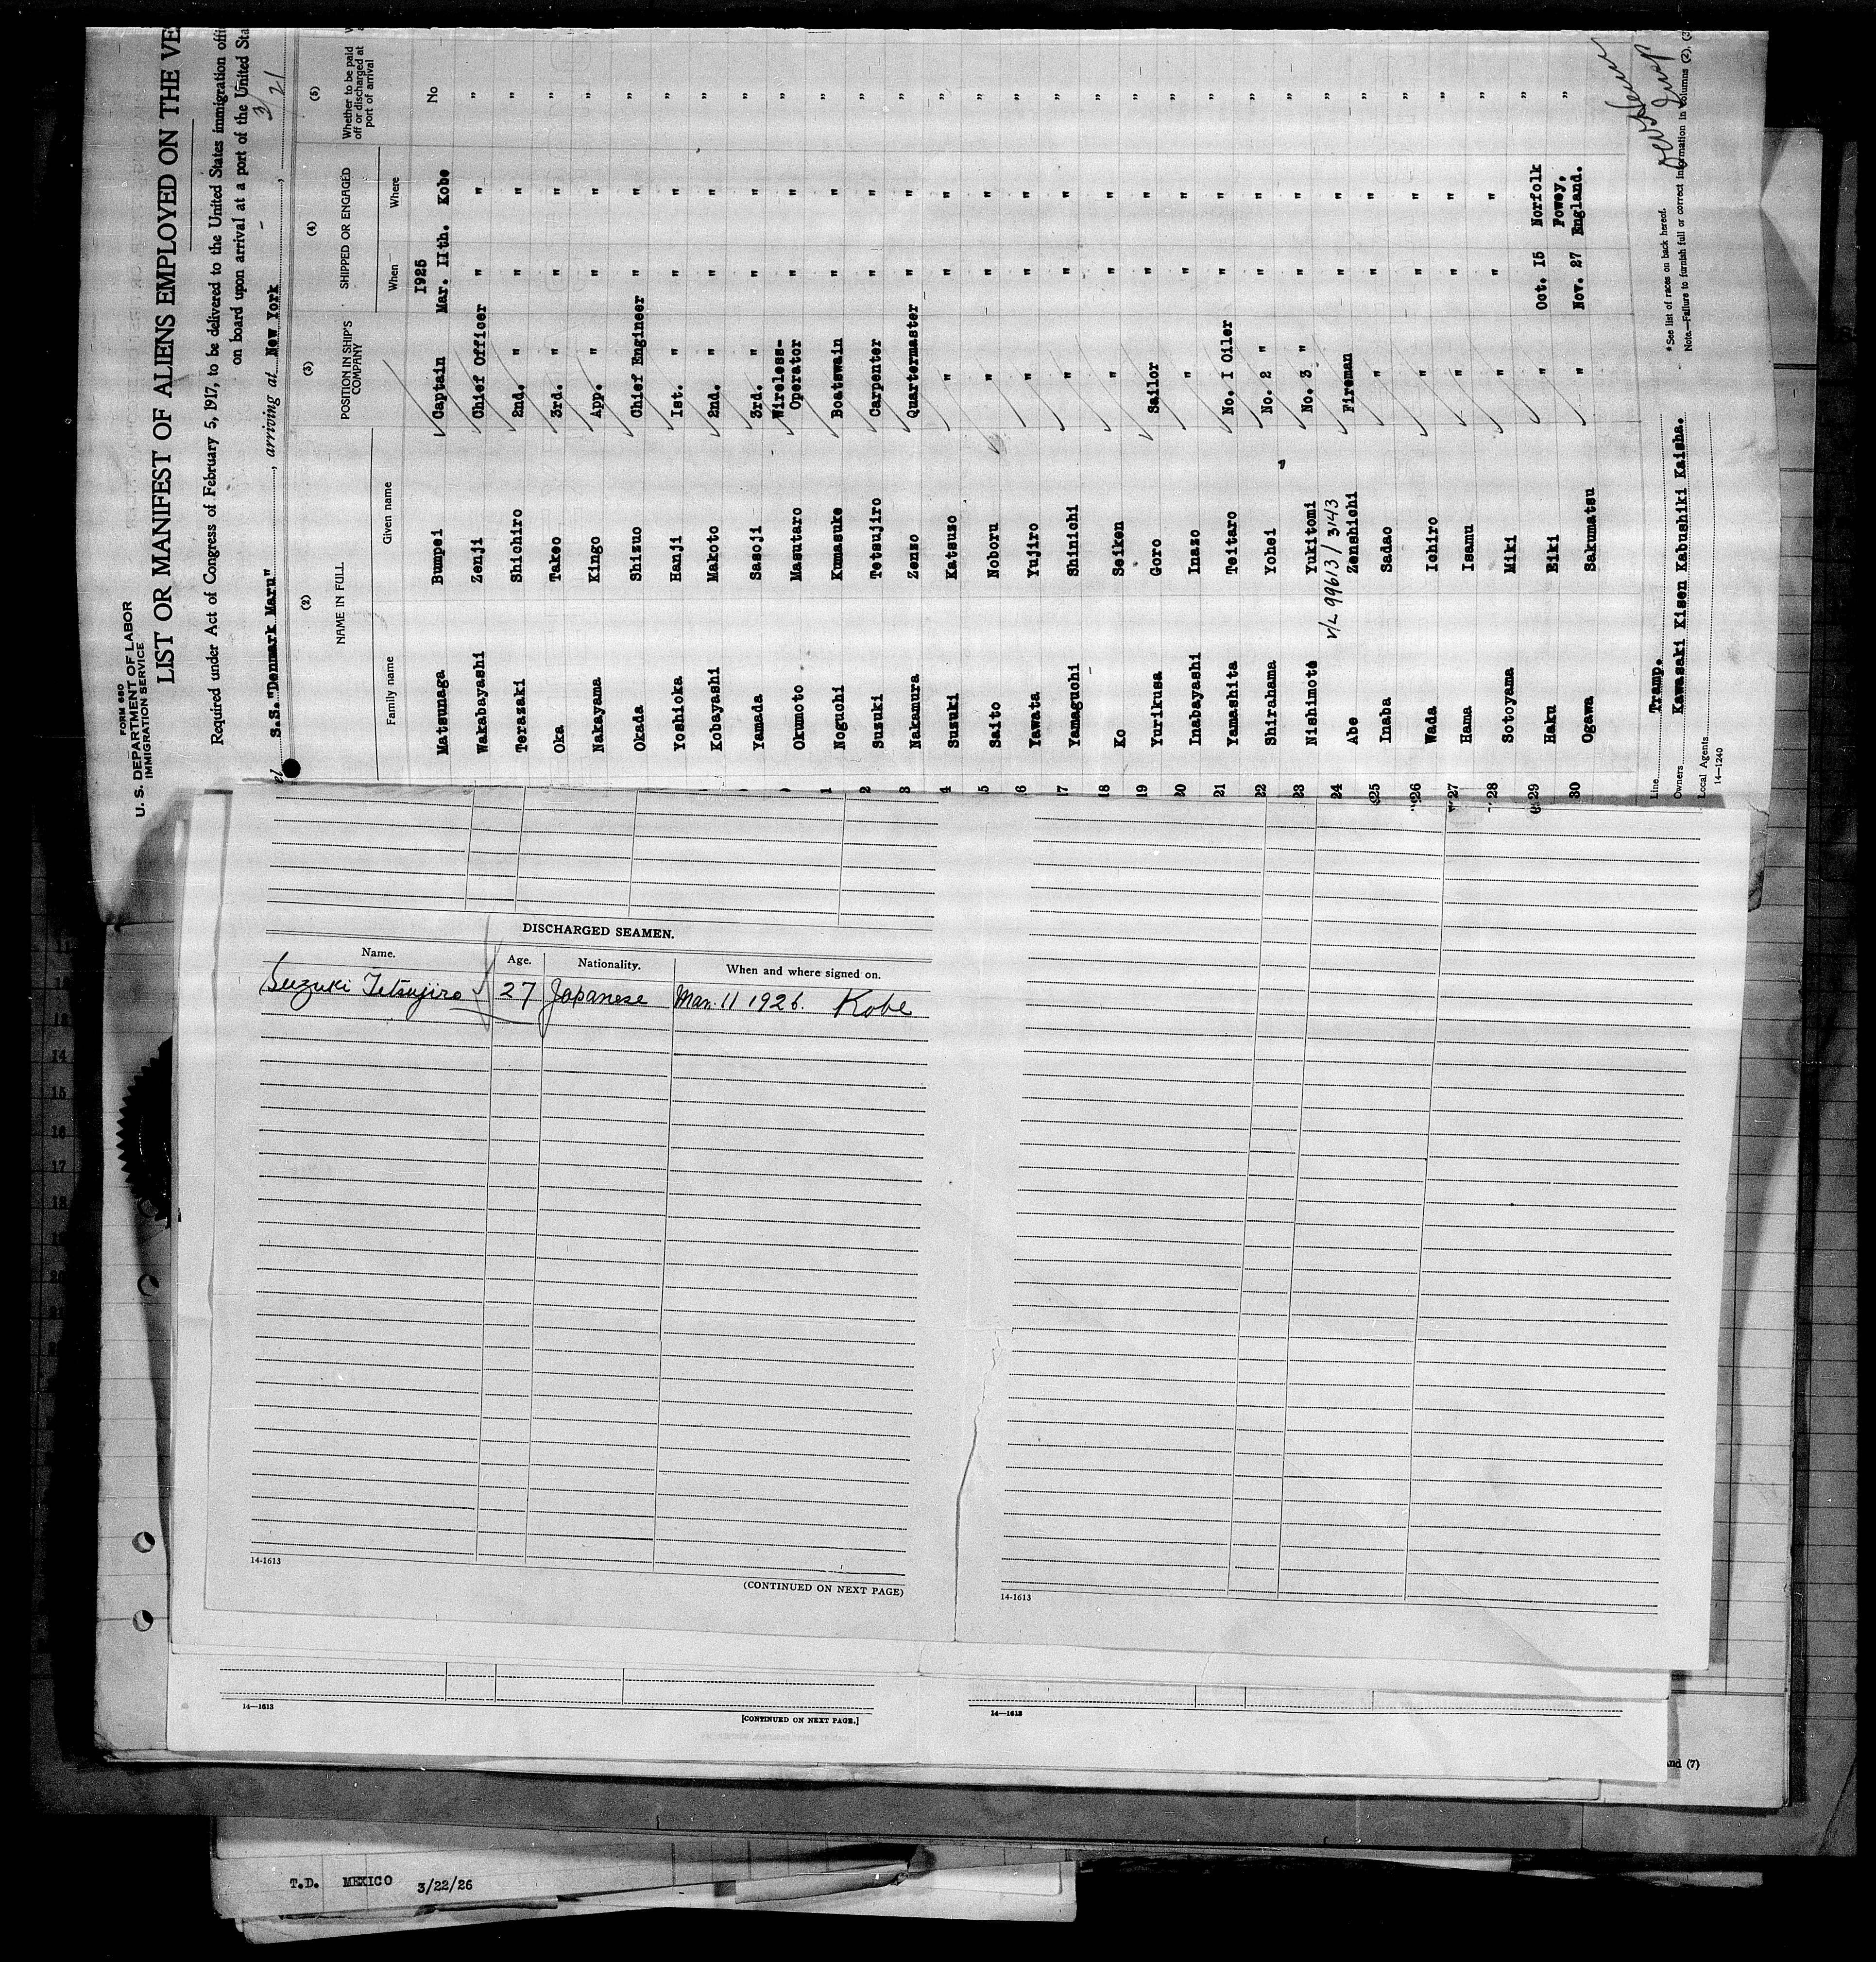 FORM 680
U. S. DEPARTMENT OF LABOR
IMMIGRATION SERVICE
LIST OR MANIFEST OF ALIENS EMPLOYED ON THE VE
Required under Act of Congress of February 5, 1917, to be delivered to the United States immigration offi
on board upon arrival at a port of the United Sta
el S.S. "Denmark Maru", arriving at New York, 3/21
(2) (3) (4) (5)
NAME IN FULL POSITION IN SHIP'S COMPANY SHIPPED OR ENGAGED Whether to be paid off or discharged at port of arrival
Family name Given name When Where
1925
Matsunaga Bumpei Captain Mar. 11th. Kobe No
Wakabayashi Zenji Chief Officer " " "
Terazaki Shichiro 2nd. " " " "
Oka Takeo 3rd. " " " "
Nakayama Kingo App. " " " "
Okada Shizuo Chief Engineer " " "
Yoshioka Hanji 1st. " " " "
Kobayashi Makoto 2nd. " " " "
Yamada Sasoji 3rd. " " " "
Okumoto Masutaro Wireless-Operator " " "
1 Noguchi Kumasuke Boatswain " " "
2 Suzuki Tetsujiro Carpenter " " "
3 Nakamura Zenzo Quartermaster " " "
4 Suzuki Katsuzo " " " "
5 Saito Noboru " " " "
6 Yawata Yujiro " " " "
7 Yamaguchi Shinichi " " " "
18 Ko Seiken " " " "
19 Yurikusa Goro Sailor " " "
20 Inabayashi Inazo " " " "
21 Yamashita Teitaro No. 1 Oiler " " "
22 Shirahama Yohei No. 2 " " " "
23 Nishimoto Yukitomi No. 3 " " " "
V/L 99613/3143
24 Abe Zenshichi Fireman " " "
25 Inaba Sadao " " " "
26 Wada Ichiro " " " "
27 Hama Isamu " " " "
28 Sotoyama Miki " " " "
29 Haku Eiki " Oct. 15 Norfolk "
30 Ogawa Sakumatsu " Nov. 27 Fowey, England. "
Line Tramp.
Owners Kawasaki Kisen Kabushiki Kaisha.
Local Agents
14—1240
*See list of races on back hereof.
Note.—Failure to furnish full or correct information in columns (2), (3
DISCHARGED SEAMEN.
Name. Age. Nationality. When and where signed on.
Suzuki Tetsujiro 27 Japanese Mar. 11 1926. Kobe
14-1613
(CONTINUED ON NEXT PAGE)
14-1613
14—1613
[CONTINUED ON NEXT PAGE.]
14—1613
and (7)
14
15
16
17
18
T.D. MEXICO 3/22/26